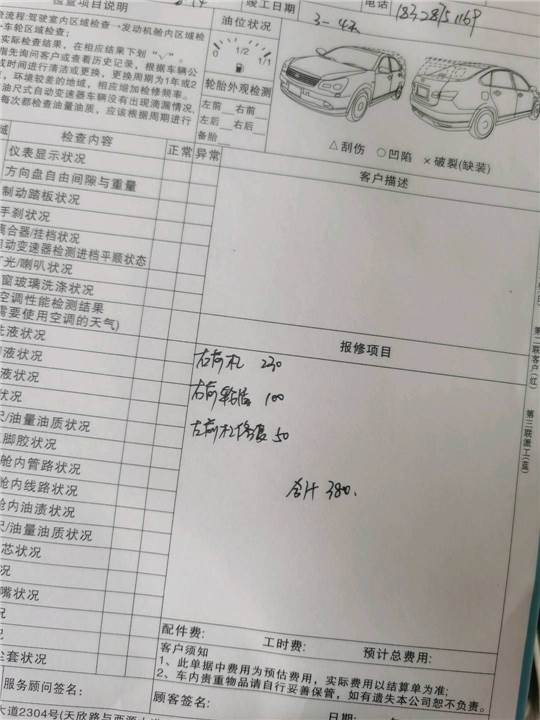 检查项目说明
竣工日期
3-4天
电话
油位状况
0 1/2 1/1
流程:驾驶室内区域检查→发动机舱内区域检
车轮区域检查;
实际检查结果,在相应结果下划“√”。
指先询问客户或查看历史记录,根据车辆公
或时间进行清洁或更换,更换周期为1年或2
,环境较差的地域,相应增加检修频率。
油尺式自动变速器车辆没有出现渗漏情况,
每次都检查油量油质,应该根据周期进行
轮胎外观检测
左前 右前
左后 右后
备胎
△刮伤 ○凹陷 ×破裂(缺装)
检查内容 正常 异常
客户描述
仪表显示状况
方向盘自由间隙与重量
制动踏板状况
手刹状况
离合器/挂档状况
自动变速器检测进档平顺状态
灯光/喇叭状况
窗玻璃洗涤状况
空调性能检测结果
需要使用空调的天气)
洗液状况
液状况
液状况
尺/油量油质状况
脚胶状况
舱内管路状况
舱内线路状况
舱内油渍状况
尺/油量油质状况
芯状况
况
嘴状况
况
况
尘套状况
报修项目
230
100
50
合计 380.
第二联客户(红)
第三联派工(蓝)
配件费: 工时费: 预计总费用:
客户须知
1、此单据中费用为预估费用,实际费用以结算单为准;
2、车内贵重物品请自行妥善保管,如有遗失本公司恕不负责。
服务顾问签名: 顾客签名: 日期:
大道2304号(天欣路与西源